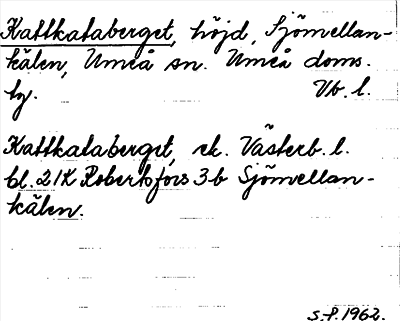 Kattkataberget, höjd, Sjömellan-
kälen, Umeå sn. Umeå doms.
hg. Vb. l.
Kattkataberget, ek. Västerb. l.
bl. 21K Robertsfors 3b Sjömellan-
kälen.
S.P. 1962.